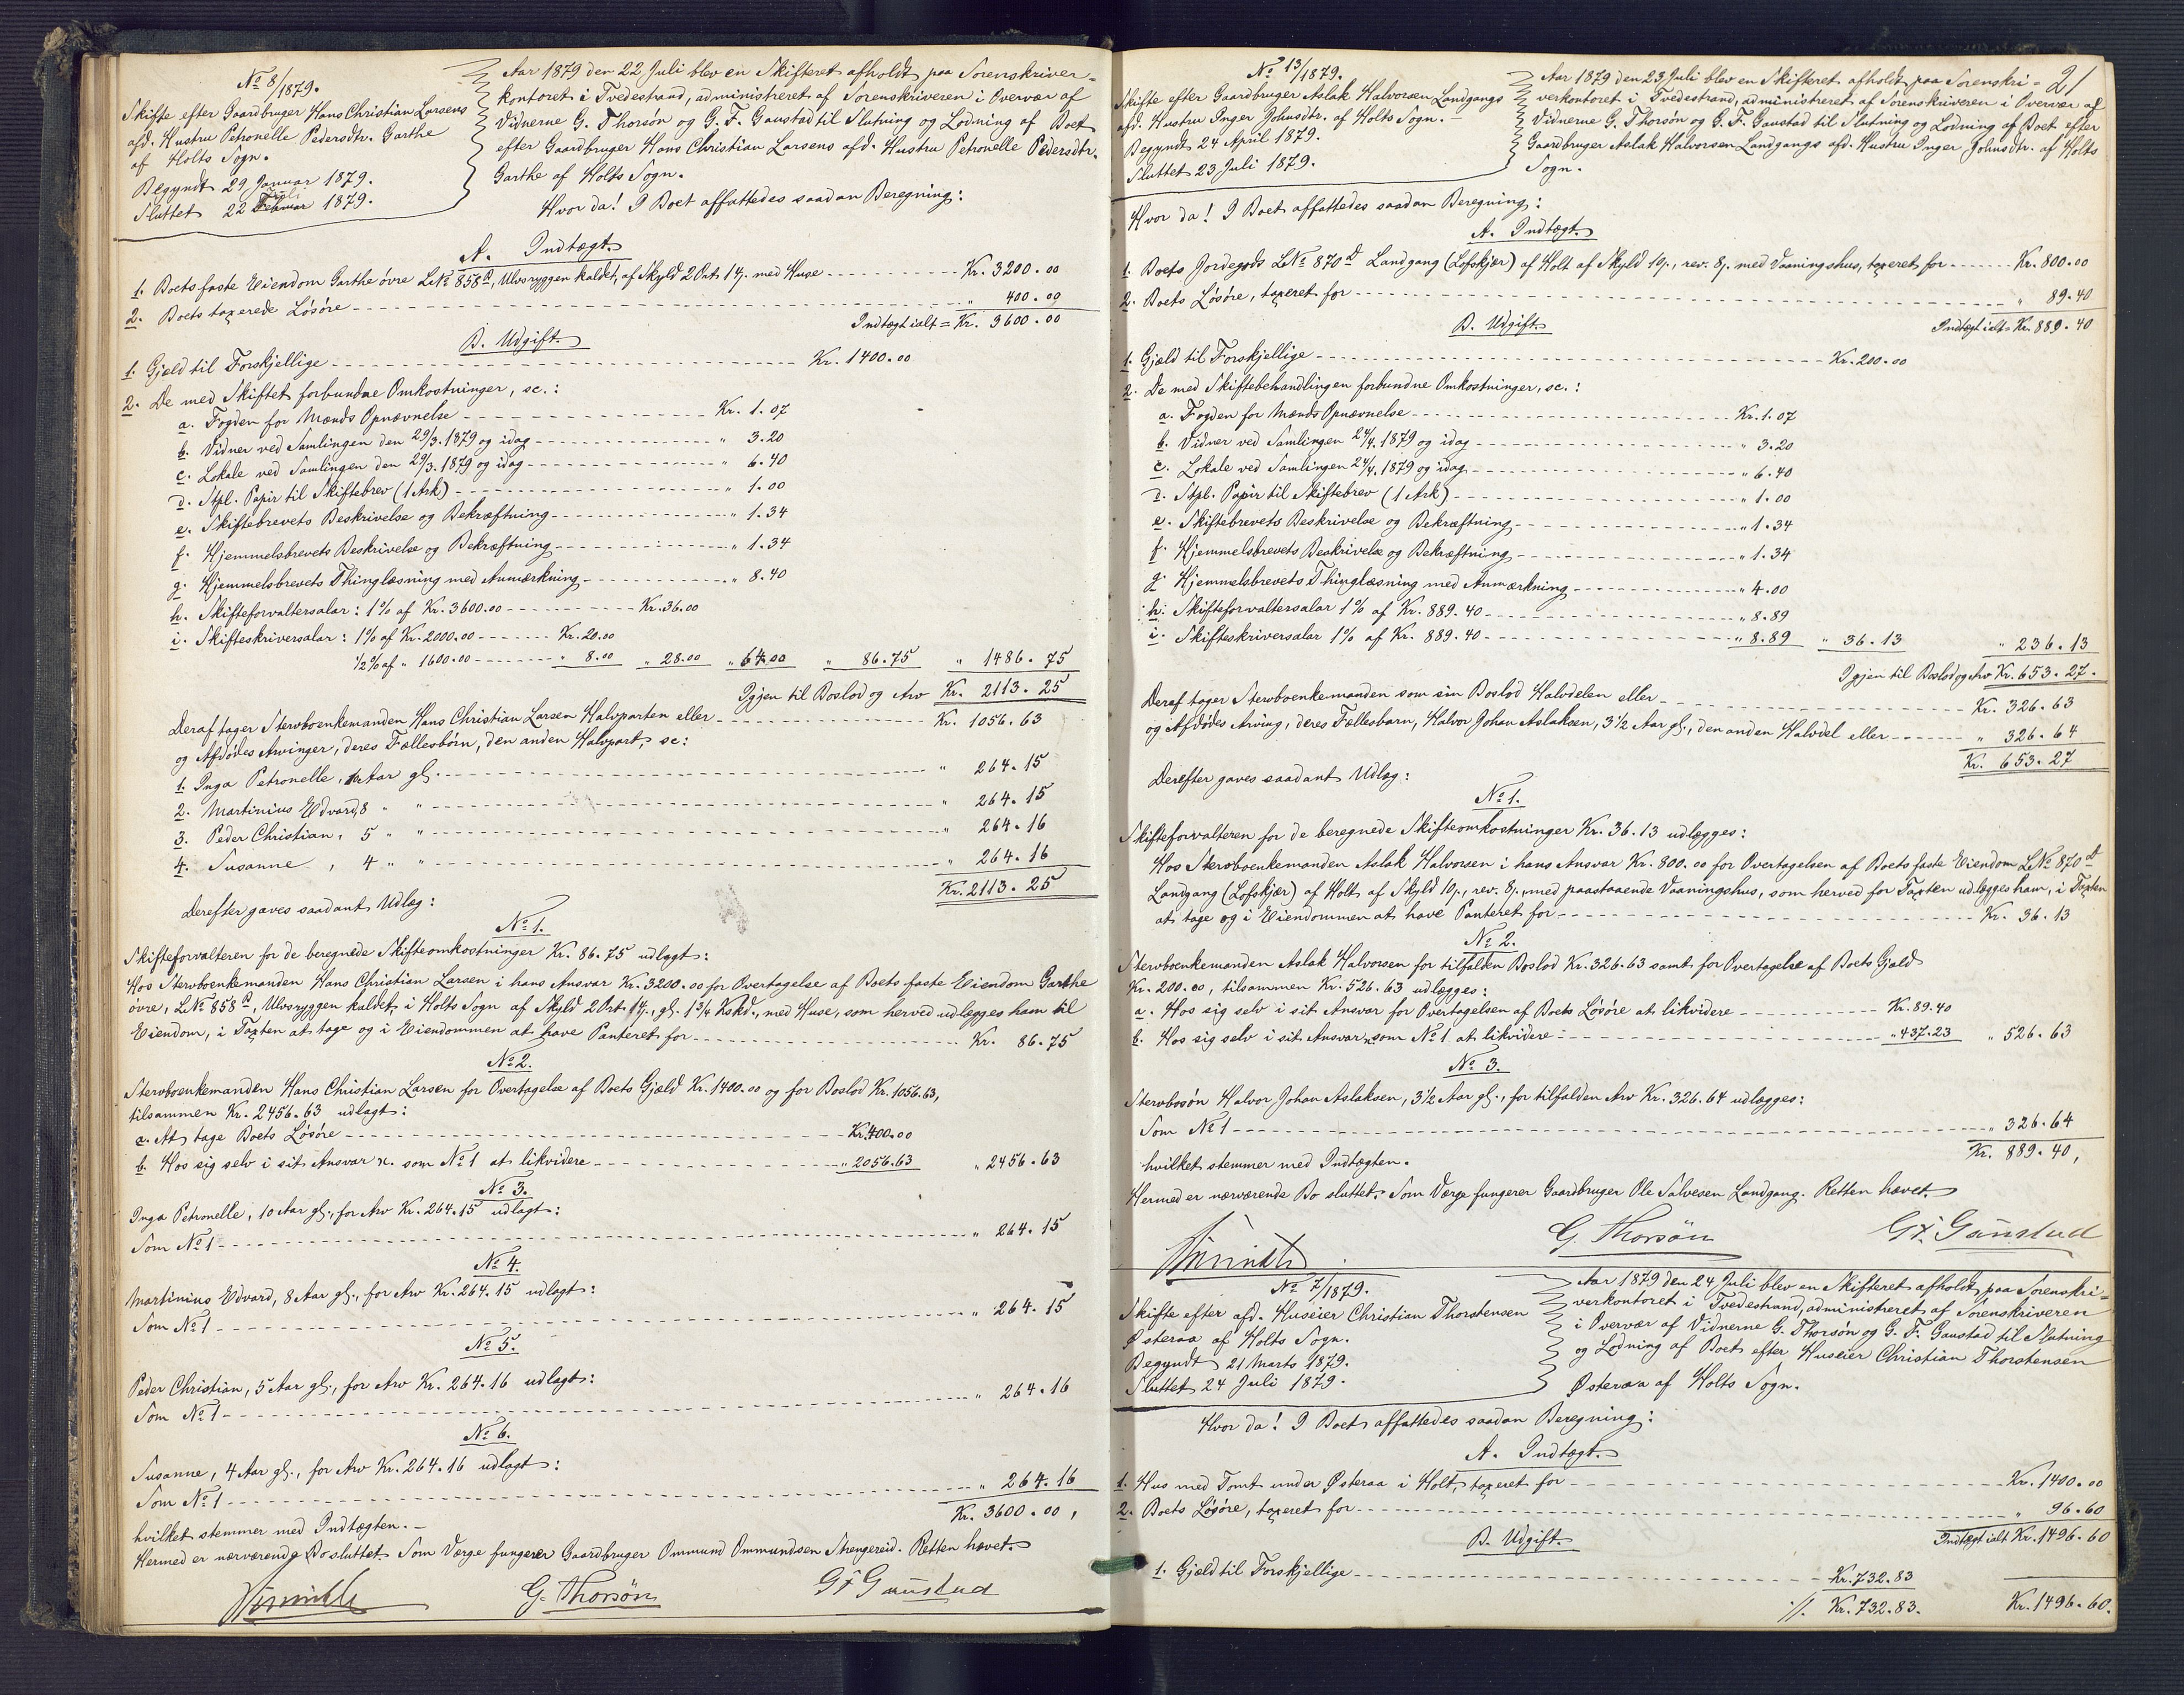 No 8/1879.
Skifte efter Gaardbruger Hans Christian Larsens
afd. Hustru Petronelle Pedersdtr. Garthe
af Holts Sogn.
Begyndt 29 Januar 1879.
Sluttet 22 Juli 1879.
Aar 1879 den 22 Juli blev en Skifteret afholdt paa Sorenskriver-
kontoret i Tvedestrand, administreret af Sorenskriveren i Overvær af
Vidnerne G. Thorsön og G. F. Gaustad til Slutning og Lodning af Boet
efter Gaardbruger Hans Christian Larsens afd. Hustru Petronelle Pedersdtr.
Garthe af Holts Sogn.
Hvor da! I Boet affattedes saadan Beregning:
A. Indtægt.
1. Boets faste Eiendom Garthe øvre LNo 858a, Ulvsryggen kaldet, af Skyld 2 Ort 1 ß. med Huse Kr. 3200.00
2. Boets taxerede Lösöre " 400.00
Indtægt ialt = Kr. 3600.00
B. Udgift.
1. Gjæld til Forskjellige Kr. 1400.00
2. De med Skiftet forbundne Omkostninger, sc.:
a. Fogden for Mænds Opnævnelse Kr. 1.07
b. Vidner ved Samlingen den 29/3.1879 og idag " 3.20
c. Lokale ved Samlingen den 29/3.1879 og idag " 6.40
d. Stpl. Papir til Skiftebrev (1 Ark) " 1.00
e. Skiftebrevets Beskrivelse og Bekræftning " 1.34
f. Hjemmelsbrevets Beskrivelse og Bekræftning " 1.34
g. Hjemmelsbrevets Thinglæsning med Anmærkning " 8.40
h. Skifteforvaltersalar: 1% af Kr. 3600.00 Kr. 36.00
i. Skifteskriversalar: 1% af Kr. 2000.00 Kr. 20.00
1/2% af " 1600.00 " 8.00 " 28.00 " 64.00 " 86.75 " 1486.75
Igjen til Boslod og Arv Kr. 2113.25
Deraf tager Stervboenkemanden Hans Christian Larsen Halvparten eller Kr. 1056.63
og Afdødes Arvinger, deres Fællesbörn, den anden Halvpart, sc:
1. Inga Petronelle, 10 Aar gl. " 264.15
2. Martinius Edvard, 8 " " " 264.15
3. Peder Christian, 5 " " " 264.16
4. Susanne, 4 " " " 264.16
Kr. 2113.25
Derefter gaves saadant Udlæg:
No 1.
Skifteforvalteren for de beregnede Skifteomkostninger Kr. 86.75 udlagt:
Hos Stervboenkemanden Hans Christian Larsen i hans Ansvar Kr. 3200.00 for Overtagelse af Boets faste Eiendom Garthe
øvre, LNo 858a, Ulvsryggen kaldet i Holts Sogn af Skyld 2 Ort 1 ß., gl. 1 3/4 Kskd., med Huse, som herved udlægges ham til
Eiendom, i Taxten at tage og i Eiendommen at have Panteret for Kr. 86.75
No 2.
Stervboenkemanden Hans Christian Larsen for Overtagelse af Boets Gjæld Kr. 1400.00 og for Boslod Kr. 1056.63,
tilsammen Kr. 2456.63 udlagt:
a. At tage Boets Lösöre Kr. 400.00
b. Hos sig selv i sit Ansvar x. som No 1 at likvidere " 2056.63 " 2456.63
No 3.
Inga Petronelle, 10 Aar gl., for Arv Kr. 264.15 udlagt:
Som No 1 " 264.15
No 4.
Martinius Edvard, 8 Aar gl., for Arv Kr. 264.15 udlagt:
Som No 1 " 264.15
No 5.
Peder Christian, 5 Aar gl., for Arv Kr. 264.16 udlagt:
Som No 1 " 264.16
No 6.
Susanne, 4 Aar gl., for Arv Kr. 264.16 udlagt:
Som No 1 " 264.16
Kr. 3600.00,
hvilket stemmer med Indtægten.
Hermed er nærværende Bo sluttet. Som Værge fungerer Gaardbruger Ommund Ommundsen Strengereid. Retten hævet.
G. Thorsön G F Gaustad
21
No 13/1879.
Skifte efter Gaardbruger Aslak Halvorsen Landgangs
afd. Hustru Inger Johnsdtr. af Holts Sogn.
Begyndt 24 April 1879.
Sluttet 23 Juli 1879.
Aar 1879 den 23 Juli blev en Skifteret afholdt paa Sorenskri-
verkontoret i Tvedestrand, administreret af Sorenskriveren i Overvær af
Vidnerne G. Thorsön og G. F. Gaustad til Slutning og Lodning af Boet efter
Gaardbruger Aslak Halvorsen Landgangs afd. Hustru Inger Johnsdtr. af Holts
Sogn.
Hvor da! I Boet affattedes saadan Beregning:
A. Indtægt.
1. Boets Jordegods LNo 870d Landgang (Lofskjær) af Holt af Skyld 10 ß., rev. 8 ß. med Vaaningshus, taxeret for Kr. 800.00
2. Boets Lösöre, taxeret for " 89.40
Indtægt ialt Kr. 889.40
B. Udgift.
1. Gjæld til Forskjellige Kr. 200.00
2. De med Skiftebehandlingen forbundne Omkostninger, sc.:
a. Fogden for Mænds Opnævnelse Kr. 1.07
b. Vidner ved Samlingen 24/4.1879 og idag " 3.20
c. Lokale ved Samlingen 24/4.1879 og idag " 6.40
d. Stpl. Papir til Skiftebrev (1 Ark) " 1.00
e. Skiftebrevets Beskrivelse og Bekræftning " 1.34
f. Hjemmelsbrevets Beskrivelse og Bekræftning " 1.34
g. Hjemmelsbrevets Thinglæsning med Anmærkning " 4.00
h. Skifteforvaltersalar 1% af Kr. 889.40 " 8.89
i. Skifteskriversalar 1% af Kr. 889.40 " 8.89 " 36.13 " 236.13
Igjen til Boslod og Arv Kr. 653.27.
Deraf tager Stervboenkemanden som sin Boslod Halvdelen eller Kr. 326.63
og Afdødes Arving, deres Fællesbarn, Halvor Johan Aslaksen, 3 1/2 Aar gl., den anden Halvdel eller " 326.64
Kr. 653.27
Derefter gaves saadant Udlæg:
No 1.
Skifteforvalteren for de beregnede Skifteomkostninger Kr. 36.13 udlægges:
Hos Stervboenkemanden Aslak Halvorsen i hans Ansvar Kr. 800.00 for Overtagelsen af Boets faste Eiendom LNo 870d
Landgang (Lofskjær) af Holt af Skyld 10 ß., rev. 8 ß., med paastaaende Vaaningshus, som herved for Taxten udlægges ham, i Taxten
at tage og i Eiendommen at have Panteret for Kr. 36.13
No 2.
Stervboenkemanden Aslak Halvorsen for tilfalden Boslod Kr. 326.63 samt for Overtagelse af Boets Gjæld
Kr. 200.00, tilsammen Kr. 526.63 udlægges:
a. Hos sig selv i sit Ansvar for Overtagelsen af Boets Lösöre at likvidere Kr. 89.40
b. Hos sig selv i sit Ansvar x. som No 1 at likvidere " 437.23 " 526.63
No 3.
Stervbosön Halvor Johan Aslaksen, 3 1/2 Aar gl., for tilfalden Arv Kr. 326.64 udlægges:
Som No 1 " 326.64
Kr. 889.40,
hvilket stemmer med Indtægten.
Hermed er nærværende Bo sluttet. Som Værge fungerer Gaardbruger Ole Salvesen Landgang. Retten hævet.
G. Thorsön G F. Gaustad
No 7/1879.
Skifte efter afd. Huseier Christian Thorstensen
Østeraa af Holts Sogn.
Begyndt 21 Marts 1879.
Sluttet 24 Juli 1879.
Aar 1879 den 24 Juli blev en Skifteret afholdt paa Sorenskri-
verkontoret i Tvedestrand, administreret af Sorenskriveren
i Overvær af Vidnerne G. Thorsön og G. F. Gaustad til Slutning
og Lodning af Boet efter Huseier Christian Thorstensen
Østeraa af Holts Sogn.
Hvor da! I Boet affattedes saadan Beregning:
A. Indtægt.
1. Hus med Tomt under Østeraa i Holt, taxeret for Kr. 1400.00
2. Boets Lösöre, taxeret for " 96.60
Indtægt ialt Kr. 1496.60
B. Udgift.
1. Gjæld til Forskjellige Kr. 732.83
./. Kr. 732.83. Kr. 1496.60.